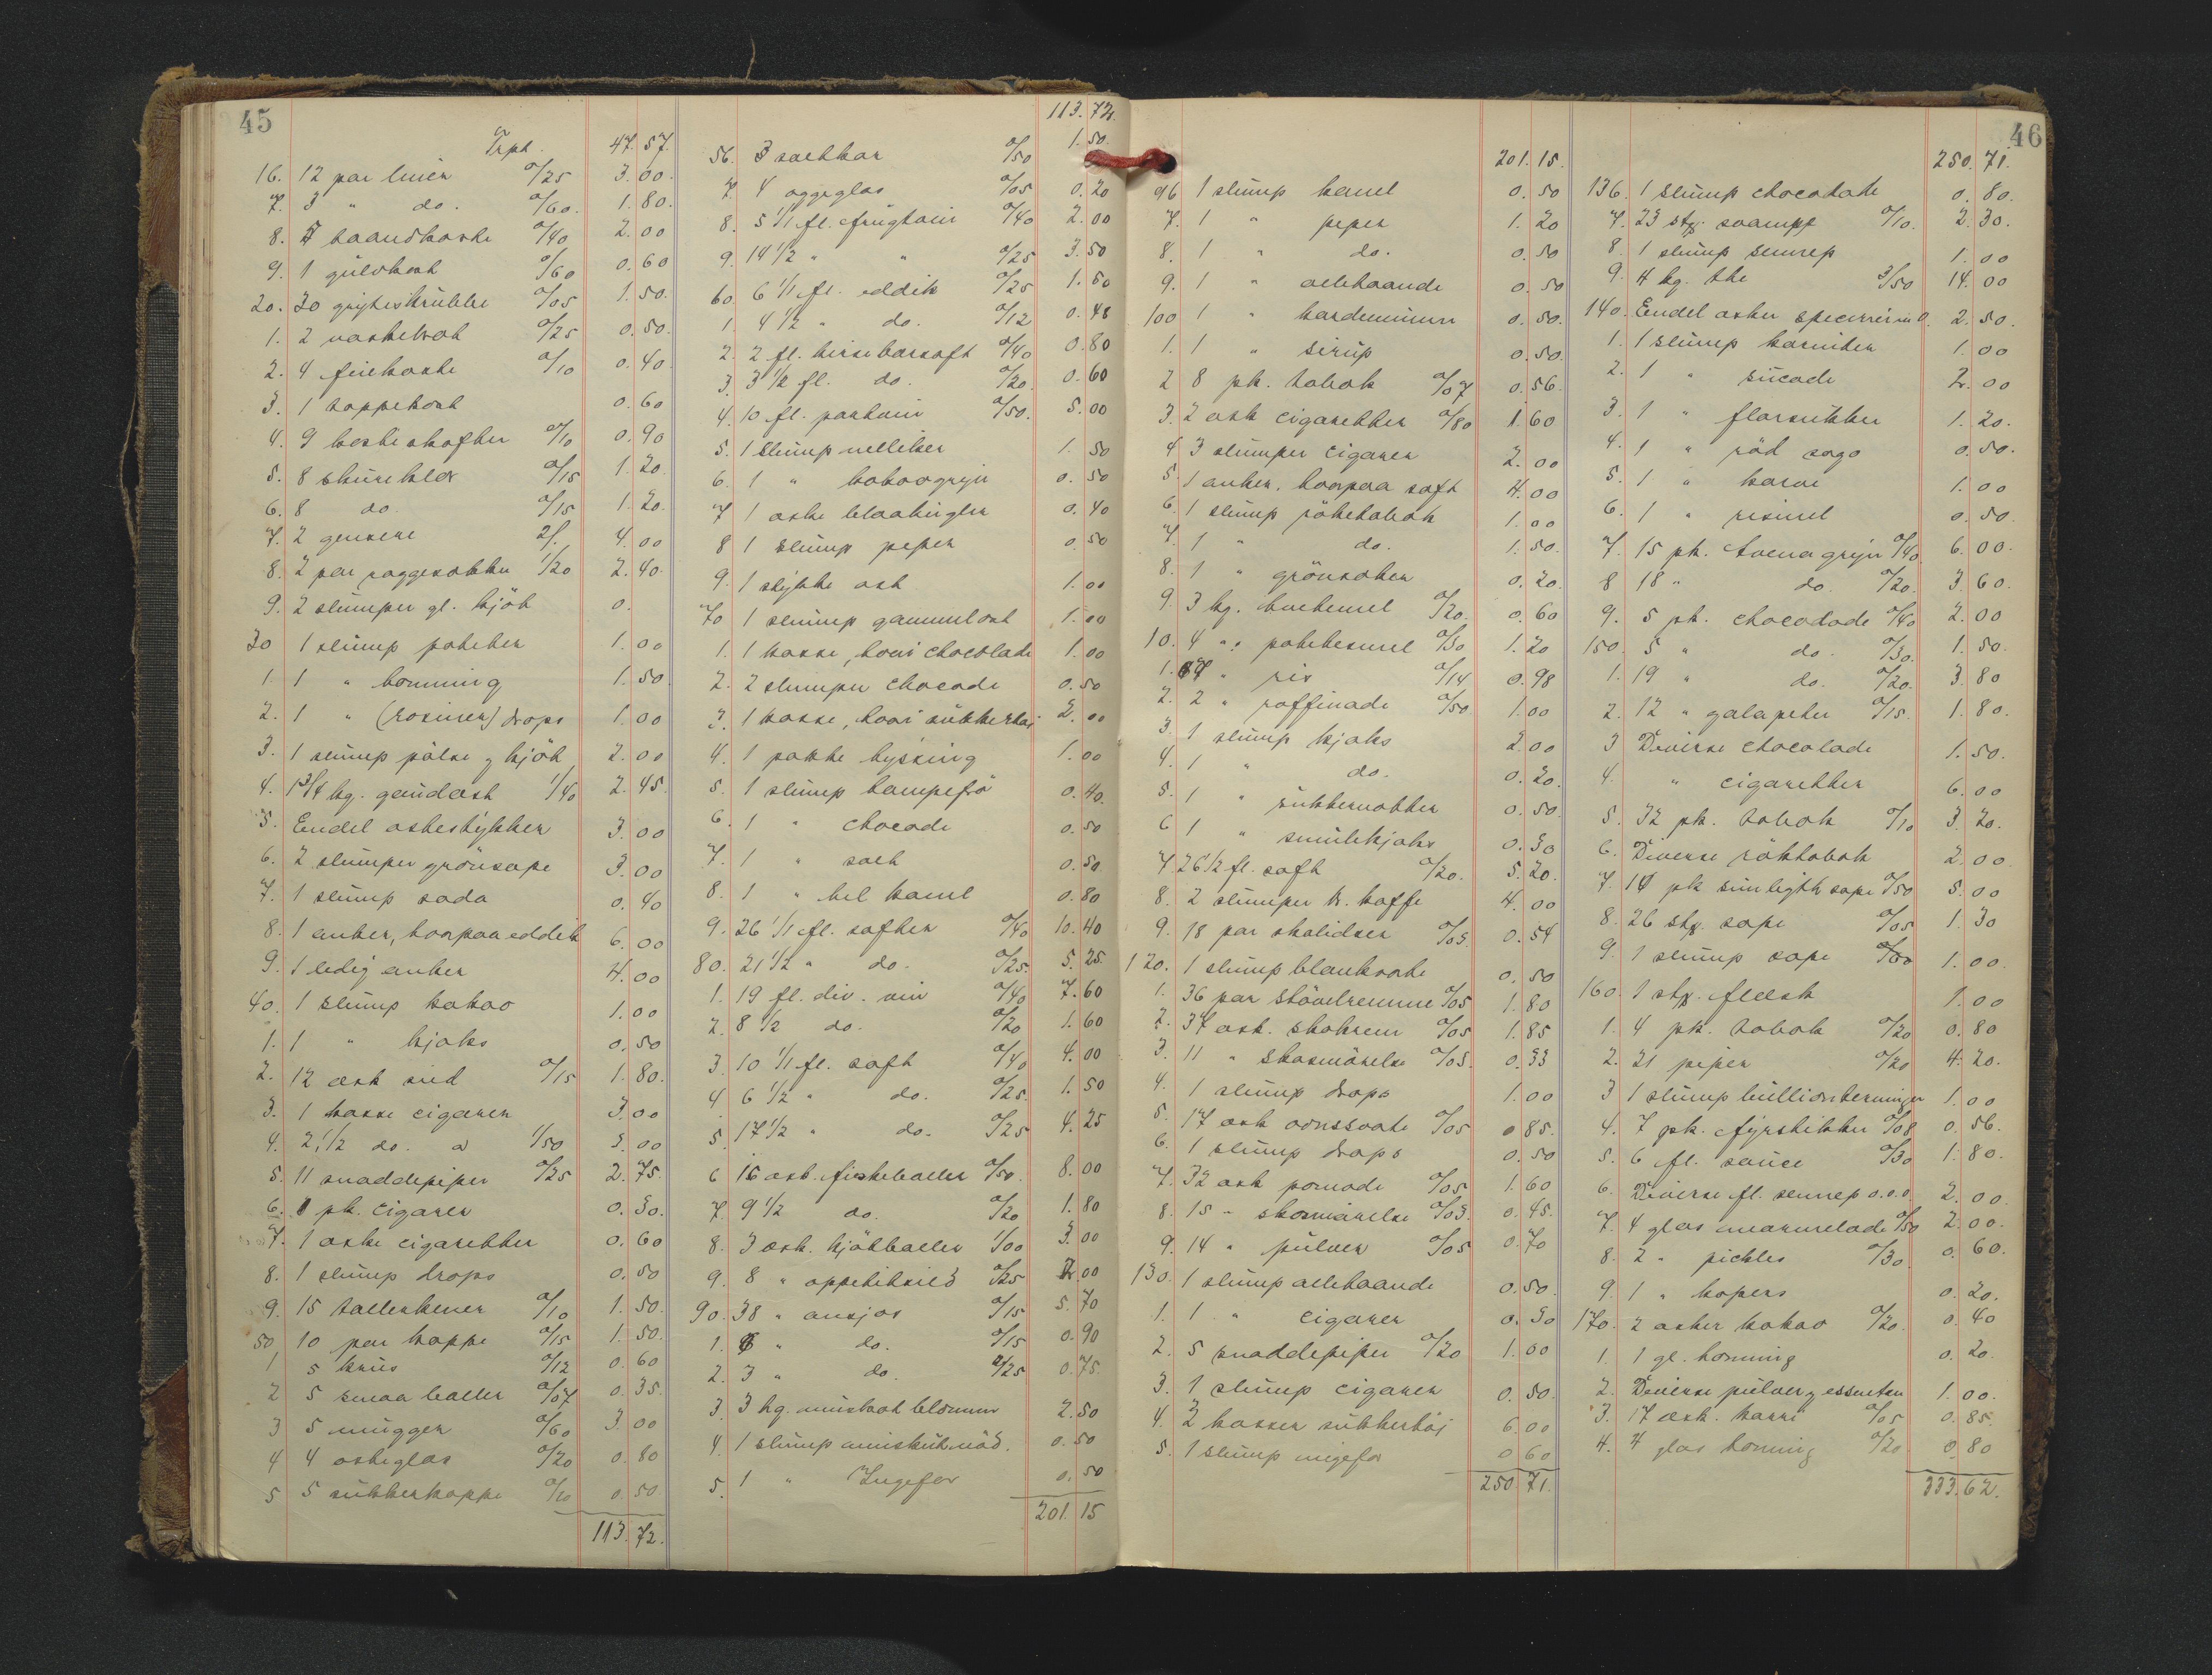 45
Trpt. 47.57.
16. 12 par luier a/25 3.00.
7. 3 " do. a/60. 1.80.
8. 5 haandkoste a/40 2.00
9. 1 gulvkost a/60 0.60
20. 30 grytheskrubbe a/05 1.50.
1. 2 vaskekost a/25 0.50.
2. 4 feiekoste a/10 0.40.
3. 1 toppekost 0.60
4. 9 kosteskafter a/10 0.90
5. 8 skureklor a/15 1.20.
6. 8 do. a/15 1.20.
7. 2 gensere 2/. 4.00
8. 2 par raggesokker 1/20 2.40.
9. 2 slumper gl. kjöt 0.
30 1 slump poteter 1.00
1. 1 " honning 1.50.
2. 1 " (rosiner) drops 1.00
3. 1 slump pölse & kjöt 2.00
4. 1 3/4 kg. gaudaost 1/40 2.45.
5. Endel ostestykker 3.00
6. 2 slumper grönsape 3.00
7. 1 slump soda 0.40
8. 1 anker, hvorpaa eddik 6.00
9. 1 ledig anker 4.00
40. 1 slump kakao 1.00
1. 1 " kjaks 0.50
2. 12 æsk sild a/15 1.80.
3. 1 kasse cigarer 3.00
4. 2, 1/2 do. a 1/50 3.00
5. 11 snaddepiper a/25 2.75.
6. 1 pk. cigarer 0.30.
7. 1 æske cigaretter 0.60
8. 1 slump drops 0.50
9. 15 tallerkener a/10 1.50.
50 10 par kopper a/15 1.50.
1 5 krus a/12 0.60
2 5 smaa boller a/07 0.35.
3 5 mugger a/60 3.00
4 4 osteglas a/20 0.80
5 5 sukkerkoppe a/10 0.50
113.72.
113.72.
56. 3 saltkar a/50 1.50.
7. 4 eggeglas a/05 0.20
8. 5 1/1 fl. frugtvin a/40 2.00
9. 14 1/2 " " a/25 3.50
60. 6 1/1 fl. eddik a/25 1.50
1. 4 1/2 " do. a/12 0.48
2. 2 fl. kirsebærsaft a/40 0.80
3 3 1/2 fl. do. a/20. 0.60
4. 10 fl. portvin a/50. 5.00
5. 1 slump nelliker 1.50
6. 1 " kokosgryn 0.50
7 1 æske blaakugler 0.40
8 1 slump peper 0.50
9. 1 stykke ost 1.00
70 1 slump gammelost 1.00
1. 1 kasse, hvori chocolade 1.00
2. 2 slumper chocade 0.50
3. 1 kasse, hvori sukkertøi 2.00
4. 1 pakke hyssing 1.00
5. 1 slump hampefrö 0.40.
6. 1 " chocade 0.50
7. 1 " salt 0.50
8. 1 " hel kanel 0.80
9. 26 1/1 fl. safter a/40 10.40
80. 21 1/2 " do. a/25. 5.25.
1. 19 fl. div. vin a/40 7.60
2. 8 1/2 do. a/20 1.60
3. 10 1/1 fl. saft a/40 4.00
4 6 1/2 " do. a/25. 1.50
5. 17 1/2 " do. a/25 4.25
6 16 æsk. fiskeboller a/50. 8.00
7. 9 1/2 do. a/20 1.80
8. 3 æsk. kjötboller 1/00 3.00
9. 8 " appetitsild a/25 2.00
90. 38 " ansjos a/15 5.70
1. 6 " do. a/15 0.90
2. 3 " do. a/25 0.75.
3. 3 hg. muskatblomme 2.50
4. 1 slump muskatnöd. 0.50
5. 1 " Ingefer 0.50
201.15
46
201.15.
96 1 slump kanel 0.50
7. 1 " peper 1.20
8. 1 " do. 0.50
9. 1 " allehaande 0.50
100 1 " kardemumme 0.50.
1. 1 " sirup 0.50.
2 8 pk. tobak a/07 0.56.
3. 2 æsk cigaretter a/80 1.60
4 3 slumper cigarer 2.00
5. 1 anker, hvorpaa saft 4.00
6. 1 slump röketobak 1.00
7. 1 " do. 1.50.
8. 1 " grönsaker 0.20.
9. 3 kg. hvetemel a/20. 0.60
10. 4 " potetesmel a/30 1.20
1. 7 " ris a/14 0.98
2. 2 " raffinade a/50 1.00
3. 1 slump kjaks 2.00
4. 1 " do. 0.20.
5. 1 " sukkernotter 0.50.
6 1 " smulekjaks 0.30
7 26 1/2 fl. saft a/20. 5.20.
8. 2 slumper br. kaffe 4.00
9. 18 par skolidser a/03. 0.54
120. 1 slump blanksverte 0.50
1. 36 par stövelremme a/05 1.80
2. 37 æsk. skokrem a/05 1.85
3. 11 " skosmörelse a/03. 0.33
4. 1 slump drops 1.00
5. 17 æsk ovnssverte a/05 0.85.
6. 1 slump drops 0.50
7. 32 æsk pomade a/05 1.60
8. 15 " skosmörelse a/03. 0.45.
9. 14 " pulver a/05 0.70
130. 1 slump allehaande 0.50.
1. 1 " cigarer 0.30
2. 5 snaddepiper a/20 1.00
3. 1 slump cigarer 0.50.
4. 2 kasser sukkertöi 6.00
5. 1 slump ingefer 0.60
250.71.
250.71.
136. 1 slump chocolade 0.80.
7. 23 stk. svamp a/10. 2.30.
8. 1 slump sennep 1.00
9. 4 kg. the 3/50 14.00
140. Endel æsker 2.50.
1. 1 slump korinter 1.00
2. 1 " sucade 2.00
3. 1 " florsukker 1.20.
4. 1 " röd sago 0.50.
5. 1 " karve 1.00
6. 1 " rismel 0.50
7. 15 pk. havregryn a/40. 6.00.
8 18 " do. a/20. 3.60.
9. 5 pk. chocolade a/40 2.00
150. 5 " do. a/30. 1.50.
1. 19 " do. a/20. 3.80
2. 12 " galapeter a/15. 1.80.
3 Diverse chocolade 1.50.
4. " cigaretter 6.00
5. 32 pk. tobak a/10 3.20.
6. Diverse röktobak 2.00
7. 10 pk sunligth sape a/50 5.00
8. 26 stk. sape a/05 1.30
9. 1 slump sape 1.00.
160. 1 stk. flesk 1.00
1. 4 pk. tobak a/20 0.80
2. 21 piper a/20 4.20.
3 1 slump bullionterninger 1.00
4. 7 pk. fyrstikker a/08 0.56.
5. 6 fl. sauce a/30 1.80.
6. Diverse fl. sennep o.s.v. 2.00.
7. 4 glas marmelade a/50 2.00.
8. 2 " pickles a/30. 0.60.
9. 1 " kapers 0.20.
170. 2 æsker kakao a/20. 0.40
1. 1 gl. honning 0.20.
2. Diverse pulver & essenser 1.00.
3. 17 æsk. karri a/05 0.85.
4. 4 glas honning a/20. 0.80
333.62.